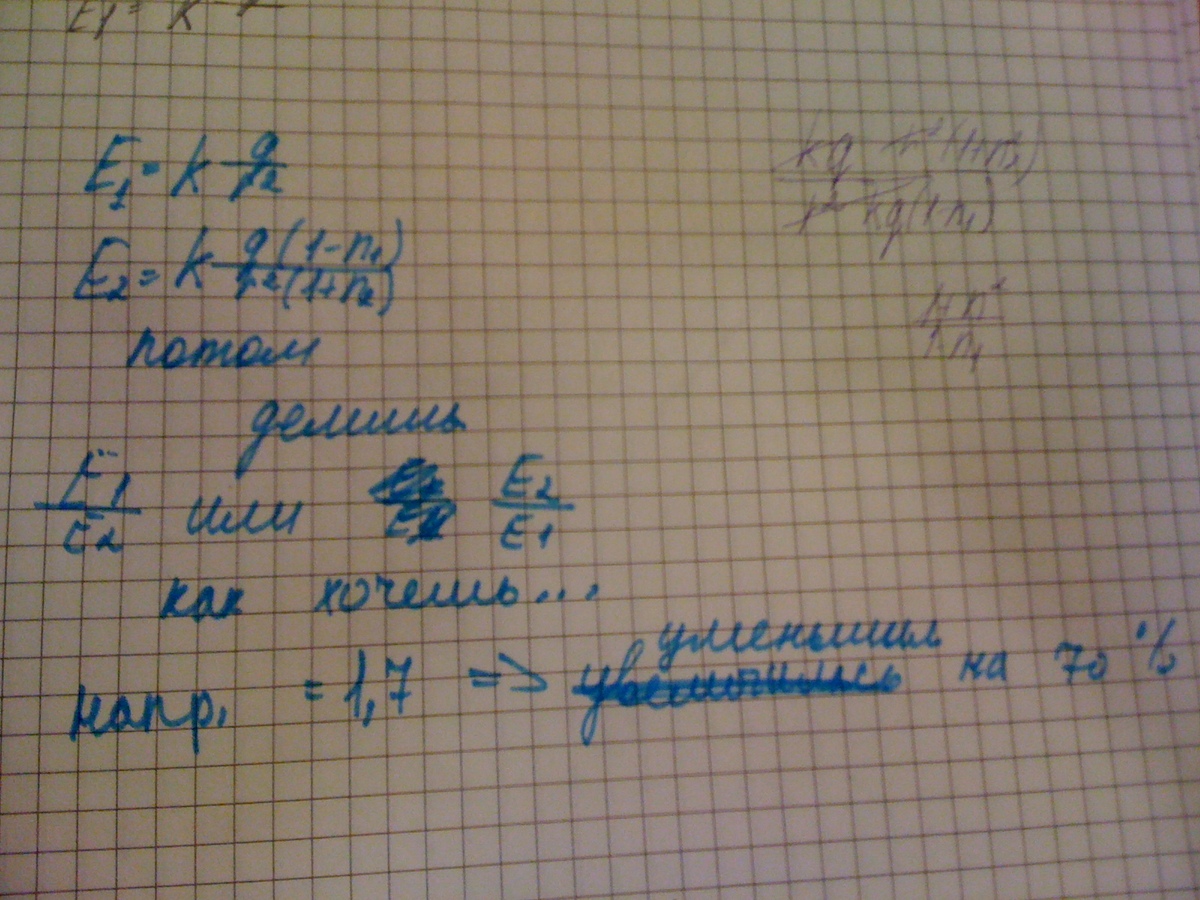 E₁ = k
E₁ = k q/r²
E₂ = k q(1-n₁)/r²(1+n₂)
потом
делишь
E₁/E₂ или E₂/E₁
как хочешь...
напр. = 1,7 => уменьшил на 70 %
kq r²(1+n₂)/r² kq(1-n₁)